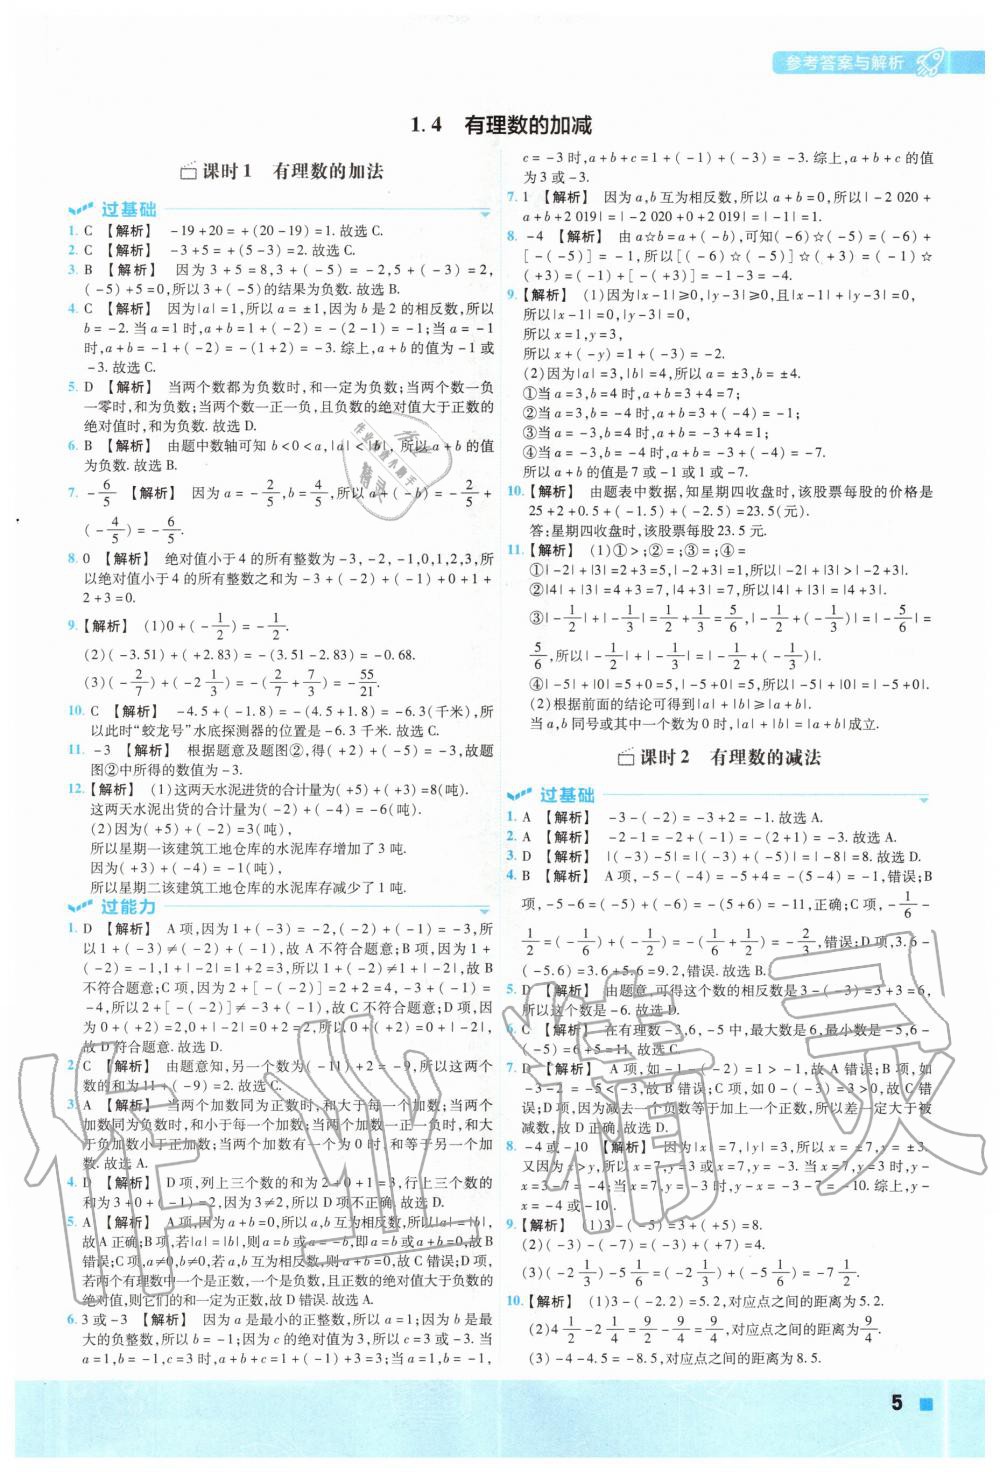 参考答案与解析
1.4 有理数的加减
课时1 有理数的加法
过基础
1. C 【解析】 -19+20=+(20-19)=1.故选 C.
2. C 【解析】 -3+5=+(5-3)=2.故选 C.
3. B 【解析】 因为 3+5=8,3+(-5)=-2,5+(-3)=2,
(-5)+5=0,所以 3+(-5)的结果为负数.故选 B.
4. C 【解析】 因为|a|=1,所以 a=±1,因为 b 是 2 的相反数,所以
b=-2.当 a=1 时,a+b=1+(-2)=-(2-1)=-1;当 a=-1
时,a+b=-1+(-2)=-(1+2)=-3.综上,a+b 的值为-1 或
-3.故选 C.
5. D 【解析】 当两个数都为负数时,和一定为负数;当两个数一负
一零时,和为负数;当两个数一正一负,且负数的绝对值大于正数的
绝对值时,和为负数.故选 D.
6. B 【解析】 由题中数轴可知 b<0<a,|a|<|b|,所以 a+b 的值
为负数.故选 B.
7. -6/5 【解析】 因为 a=-2/5,b=4/5,所以 a+(-b)=-2/5+
(-4/5)=-6/5.
8. 0 【解析】 绝对值小于 4 的所有整数为-3,-2,-1,0,1,2,3,所
以绝对值小于 4 的所有整数之和为-3+(-2)+(-1)+0+1+
2+3=0.
9. 【解析】 (1)0+(-1/2)=-1/2.
(2)(-3.51)+(+2.83)=-(3.51-2.83)=-0.68.
(3)(-2/7)+(-2 1/3)=-(2/7+7/3)=-55/21.
10. C 【解析】 -4.5+(-1.8)=-(4.5+1.8)=-6.3(千米),所
以此时“蛟龙号”水底探测器的位置是-6.3 千米.故选 C.
11. -3 【解析】 根据题意及题图②,得(+2)+(-5)=-3,故题
图②中所得的数值为-3.
12. 【解析】 (1)这两天水泥进货的合计量为(+5)+(+3)=8(吨).
这两天水泥出货的合计量为(-2)+(-4)=-6(吨).
(2)因为(+5)+(-2)=3(吨),
所以星期一该建筑工地仓库的水泥库存增加了 3 吨.
因为(+3)+(-4)=-1(吨),
所以星期二该建筑工地仓库的水泥库存减少了 1 吨.
过能力
1. D 【解析】 A 项,因为 1+(-3)=-2,(-2)+(-1)=-3,所
以 1+(-3)≠(-2)+(-1),故 A 不符合题意;B 项,因为 1+
(-2)=-1,1+|-2|=1+2=3,所以 1+(-2)≠1+|-2|,故 B
不符合题意;C 项,因为 2+[-(-2)]=2+2=4,-3+(-1)=
-4,所以 2+[-(-2)]≠-3+(-1),故 C 不符合题意;D 项,因
为 0+(+2)=2,0+|-2|=0+2=2,所以 0+(+2)=0+|-2|,
故 D 符合题意.故选 D.
2. C 【解析】 由题意知,另一个数为(-11)+2=-9,所以这两个
数的和为 11+(-9)=2.故选 C.
3. A 【解析】 当两个加数同为正数时,和大于每一个加数;当两个
加数同为负数时,和小于每一个加数;当两个加数一正一负时,和大
于负加数小于正加数;当两个加数有一个为 0 时,和等于另一个加
数.故选 A.
4. D 【解析】 D 项,列上三个数的和为 2+0+1=3,行上三个数的
和为 3+0+(-1)=2,因为 3≠2,所以 D 项不正确.故选 D.
5. A 【解析】 A 项,因为 a+b=0,所以 a,b 互为相反数,所以|a|=|b|,
故 A 正确;B 项,若|a|=|b|,则 a=b 或 a=-b,即 a=b 或 a+b=0,故 B
错误;C 项,若 a≠0,b≠0,而 a,b 互为相反数,则 a+b=0,故 C 错误;D 项,
若两个有理数中一个是正数,一个是负数,且正数的绝对值大于负数的
绝对值,则它们的和一定大于 0,故 D 错误.故选 A.
6. 3 或-3 【解析】 因为 a 是最小的正整数,所以 a=1;因为 b 是最
大的负整数,所以 b=-1;因为 c 的绝对值为 3,所以 c=±3.当
a=1,b=-1,c=3 时,a+b+c=1+(-1)+3=3;当 a=1,b=-1,
c=-3 时,a+b+c=1+(-1)+(-3)=-3.综上,a+b+c 的值
为 3 或-3.
7. 1 【解析】 因为 a,b 互为相反数,所以 a+b=0,所以|-2 020+
a+b+2 019|=|-2 020+0+2 019|=|-1|=1.
8. -4 【解析】 由 a☆b=a+(-b),可知(-6)☆(-5)=(-6)+
[-(-5)]=-1,所以[(-6)☆(-5)]☆(+3)=(-1)☆
(+3)=(-1)+[-(+3)]=-1-3=-4.
9. 【解析】 (1)因为|x-1|≥0,|y-3|≥0,且|x-1|+|y-3|=0,
所以|x-1|=0,|y-3|=0,
所以 x=1,y=3,
所以 x+(-y)=1+(-3)=-2.
(2)因为|a|=3,|b|=4,所以 a=±3,b=±4.
①当 a=3,b=4 时,a+b=3+4=7;
②当 a=3,b=-4 时,a+b=3+(-4)=-1;
③当 a=-3,b=4 时,a+b=-3+4=1;
④当 a=-3,b=-4 时,a+b=-3+(-4)=-7.
所以 a+b 的值是 7 或-1 或 1 或-7.
10. 【解析】 由题表中数据,知星期四收盘时,该股票每股的价格是
25+2+0.5+(-1.5)+(-2.5)=23.5(元).
答:星期四收盘时,该股票每股 23.5 元.
11. 【解析】 (1)①>;②=;③=;④=
①|-2|+|3|=2+3=5,|-2+3|=1,所以|-2|+|3|>|-2+3|.
②|4|+|3|=4+3=7,|4+3|=7,所以|4|+|3|=|4+3|.
③|-1/2|+|-1/3|=1/2+1/3=5/6,|-1/2+(-1/3)|=|-5/6|=
5/6,所以|-1/2|+|-1/3|=|-1/2+(-1/3)|.
④|-5|+|0|=5+0=5,|-5+0|=5,所以|-5|+|0|=|-5+0|.
(2)根据前面的结论可得到|a|+|b|≥|a+b|.
当 a,b 同号或其中一个数为 0 时,|a|+|b|=|a+b|成立.
课时2 有理数的减法
过基础
1. A 【解析】 -3-(-2)=-3+2=-1.故选 A.
2. A 【解析】 -2-1=-2+(-1)=-(2+1)=-3.故选 A.
3. D 【解析】 |(-3)-5|=|(-3)+(-5)|=|-8|=8.故选 D.
4. B 【解析】 A 项,-5-(-4)=-5+4=-(5-4)=-1,错误;B
项,-5-6=(-5)+(-6)=-(5+6)=-11,正确;C 项,-1/6-
1/2=(-1/6)+(-1/2)=-(1/6+1/2)=-2/3,错误;D 项,3.6-
(-5.6)=3.6+5.6=9.2,错误.故选 B.
5. D 【解析】 由题意,可得这个数的相反数是 3-(-3)=3+3=6,
所以这个数是-6.故选 D.
6. C 【解析】 在有理数-3,6,-5 中,最大数是 6,最小数是-5,6-
(-5)=6+5=11.故选 C.
7. D 【解析】 A 项,如-1-(-2)=1>-1,故 A 错误;B 项,如
-3-2=-5<-3,故 B 错误;C 项,如 0-5=-5<0,故 C 错
误;D 项,因为减去一个负数等于加上一个正数,所以差一定大于被
减数,故 D 正确.故选 D.
8. -4 或-10 【解析】 因为|x|=7,|y|=3,所以 x=±7,y=±3.
又因为 x>y,所以 x=7,y=-3 或 x=7,y=3.
-4 或-10.
9. 【解析】 (1)3-(-5)=3+(+5)=8.
(2)(-3)-(-7)=(-3)+(+7)=4.
(3)(-2 1/3)-5 1/6=(-2 1/3)+(-5 1/6)=-7 1/2.
10. 【解析】 (1)3-(-2.2)=5.2,对应点之间的距离为 5.2.
(2)4 1/2-2 1/4=9/2-9/4=9/4,对应点之间的距离为9/4.
(3)-4-4.5=-8.5,对应点之间的距离为 8.5.
5
作业精灵